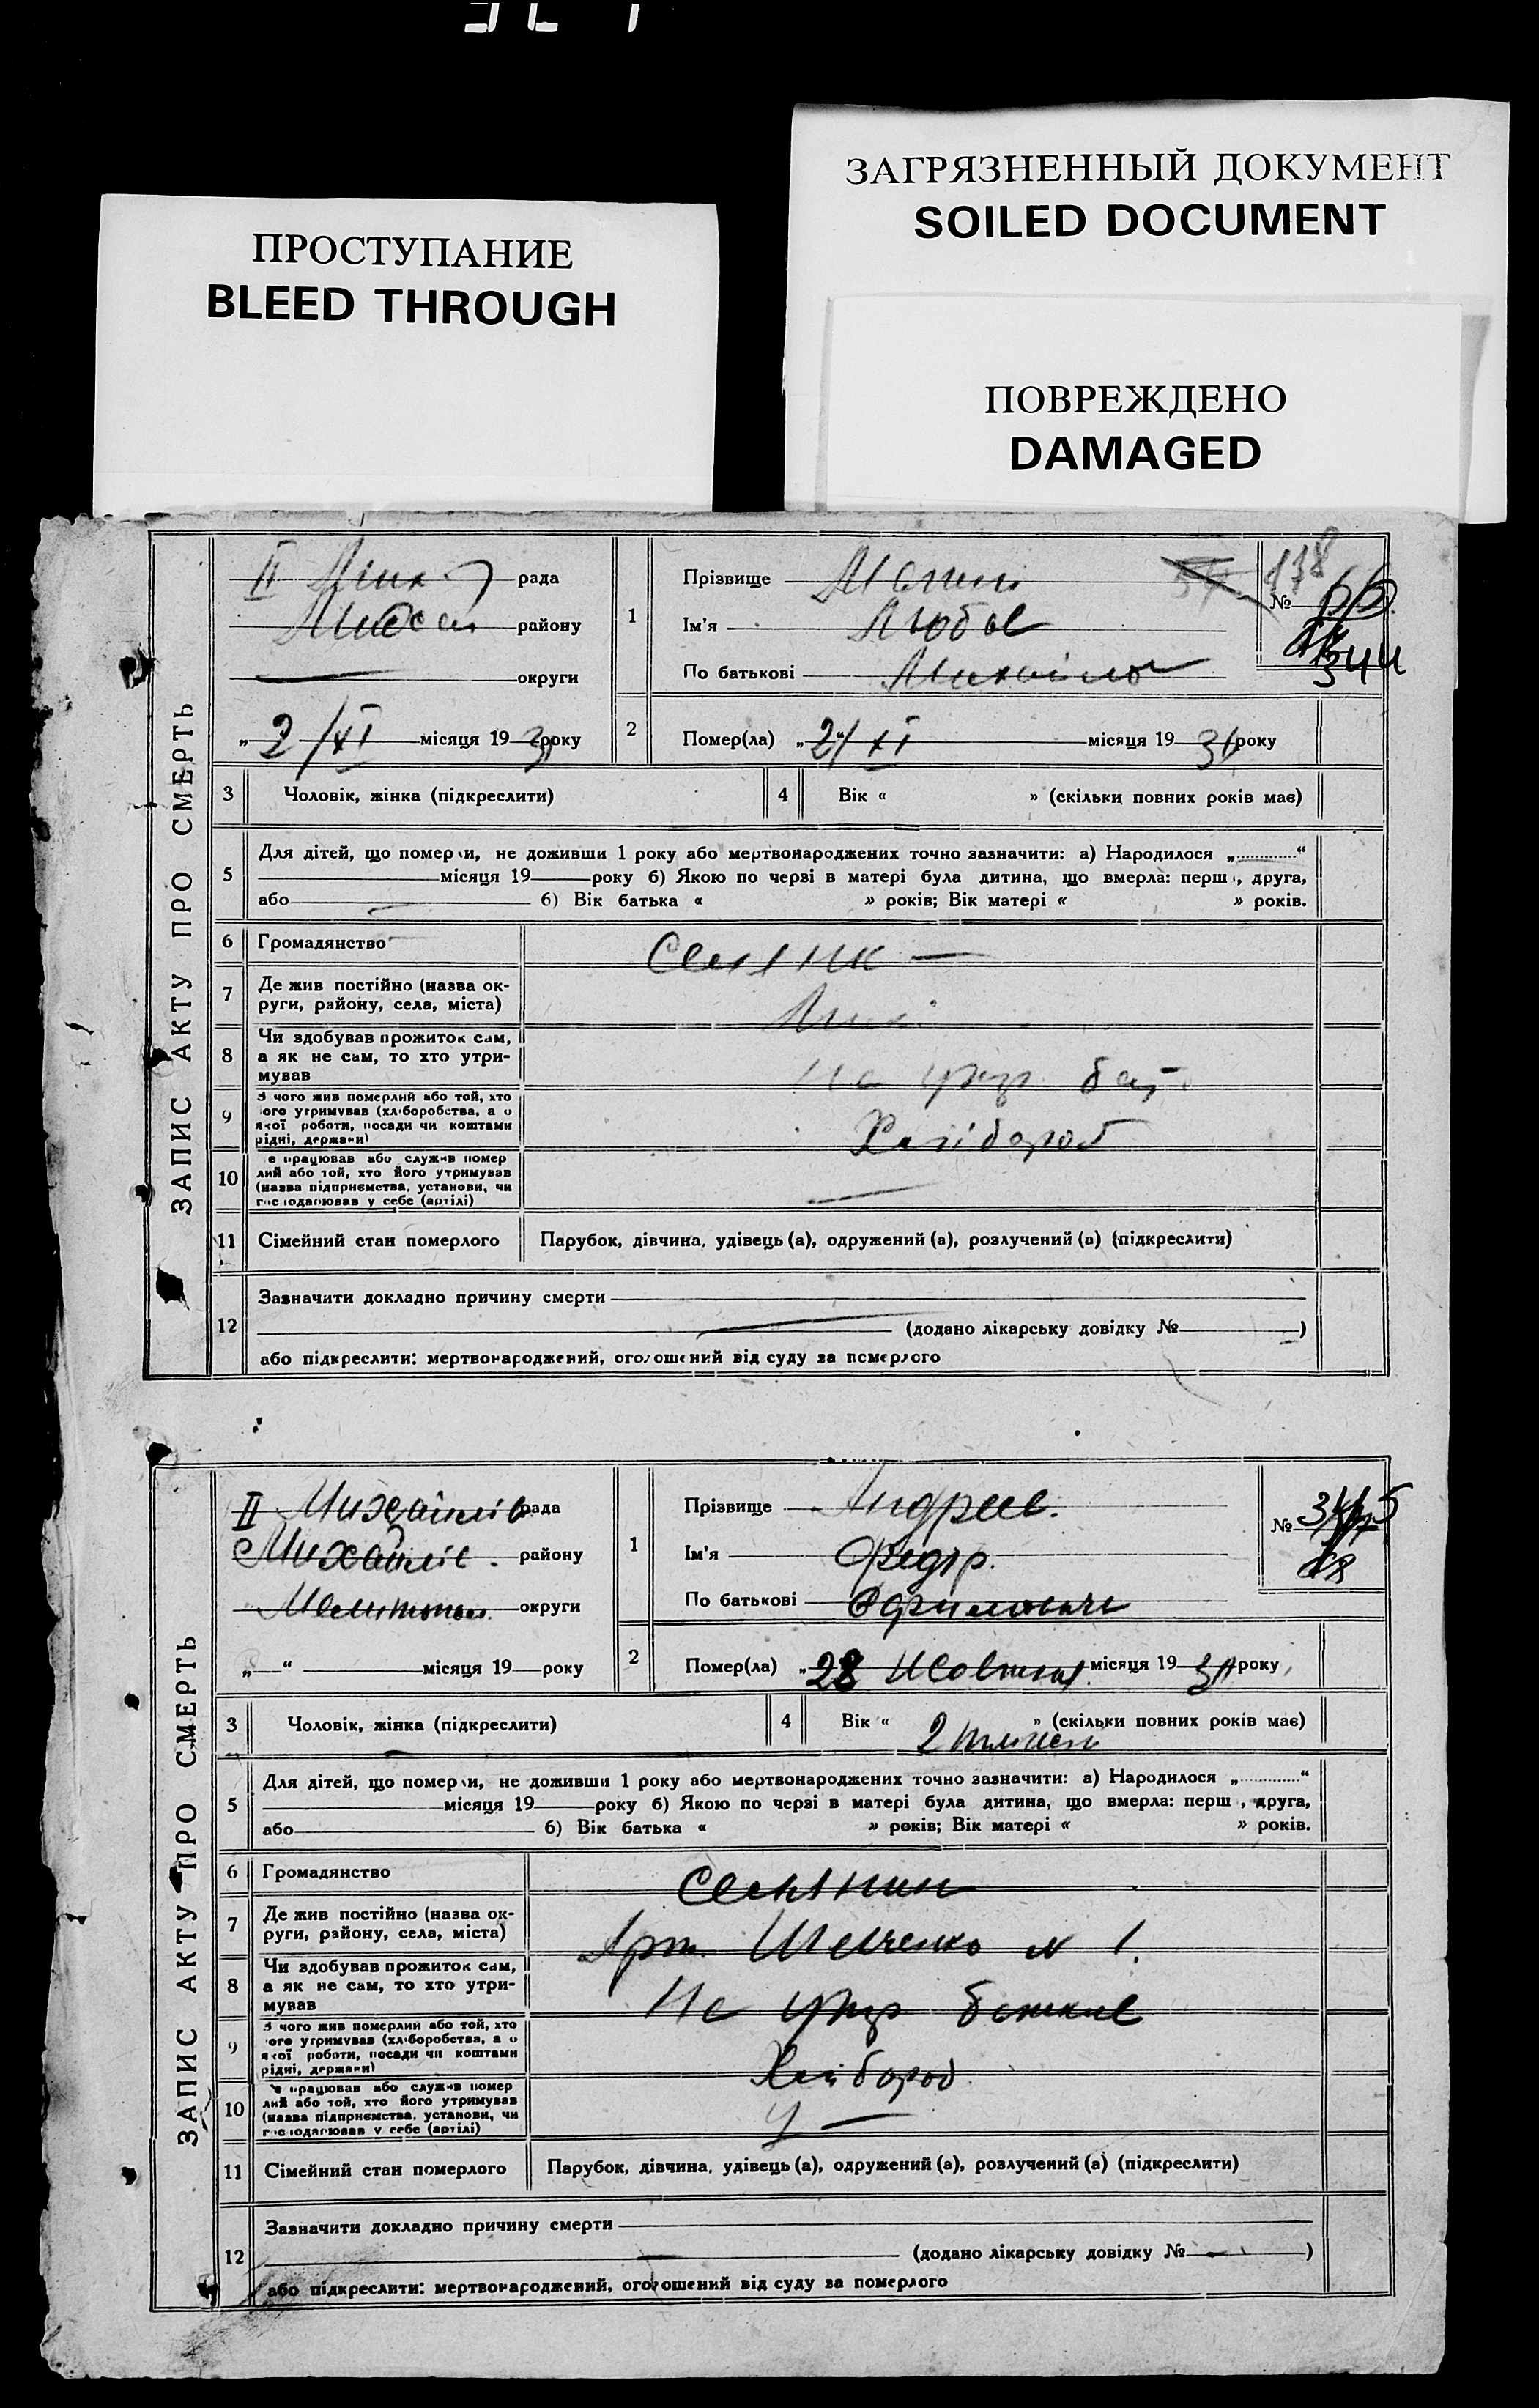 ЗАГРЯЗНЕННЫЙ ДОКУМЕНТ
SOILED DOCUMENT
ПРОСТУПАНИЕ
BLEED THROUGH
ПОВРЕЖДЕНО
DAMAGED
ЗАПИС АКТУ ПРО СМЕРТЬ
II рада
району
округи
„ 2/XI місяця 19 31 року
1
Прізвище
Ім'я Любов
По батькові Михайло
138
№
344
2
Помер(ла) „ 2/XI місяця 19 31 року
3 Чоловік, жінка (підкреслити)
4 Вік « » (скільки повних років має)
5 Для дітей, що померли, не доживши 1 року або мертвонароджених точно зазначити: а) Народилося „ “
місяця 19 року б) Якою по черзі в матері була дитина, що вмерла: перш , друга,
або б) Вік батька « » років; Вік матері « » років.
6 Громадянство
7 Де жив постійно (назва ок-
руги, району, села, міста)
8 Чи здобував прожиток сам,
а як не сам, то хто утри-
мував
На утр бат
9 З чого жив померлий або той, хто
ого утримував (хліборобства, а о
якої роботи, посади чи коштами
рідні, держави)
Хлібороб
10 е працював або служив помер
лий або той, хто його утримував
(назва підприємства, установи, чи
господарював у себе (артілі)
11 Сімейний стан померлого Парубок, дівчина, удівець (а), одружений (а), розлучений (а) (підкреслити)
12 Зазначити докладно причину смерти
(додано лікарську довідку № )
або підкреслити: мертвонароджений, оголошений від суду за померлого
ЗАПИС АКТУ ПРО СМЕРТЬ
II Михайлів рада
Михайлів. району
Мелитопол. округи
„ “ місяця 19 року
1
Прізвище Андреев.
Ім'я Федір.
По батькові
№
2
Помер(ла) „ 28 Жовтня місяця 19 31 року
3 Чоловік, жінка (підкреслити)
4 Вік « 2 » (скільки повних років має)
5 Для дітей, що померли, не доживши 1 року або мертвонароджених точно зазначити: а) Народилося „ “
місяця 19 року б) Якою по черзі в матері була дитина, що вмерла: перш , друга,
або б) Вік батька « » років; Вік матері « » років.
6 Громадянство Селянин
7 Де жив постійно (назва ок-
руги, району, села, міста)
Арт. Шевченко № 1.
8 Чи здобував прожиток сам,
а як не сам, то хто утри-
мував
На утр батьків
9 З чого жив померлий або той, хто
ого утримував (хліборобства, а о
якої роботи, посади чи коштами
рідні, держави)
Хлібороб
10 е працював або служив помер
лий або той, хто його утримував
(назва підприємства, установи, чи
господарював у себе (артілі)
11 Сімейний стан померлого Парубок, дівчина, удівець (а), одружений (а), розлучений (а) (підкреслити)
12 Зазначити докладно причину смерти
(додано лікарську довідку № )
або підкреслити: мертвонароджений, оголошений від суду за померлого